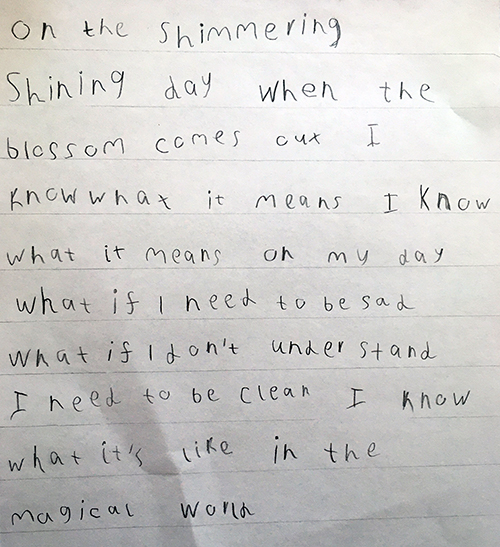 On the shimmering
Shining day when the
blossom comes out I
know what it means I know
what it means on my day
what if I need to be sad
what if I don't under stand
I need to be clean I know
what it's like in the
magical world